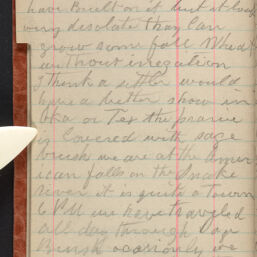 have Built on it but it looks
very desolate they Can
grow some fall Wheat
without irregation
I think a settler would
have a better show in
Oka or Tex the prairie
is Covered with sage
brush we are at the Amer
ican falls on the Snake
river it is quite a town
6 PM we have traveled
all day through Sage
Brush ocasionly we